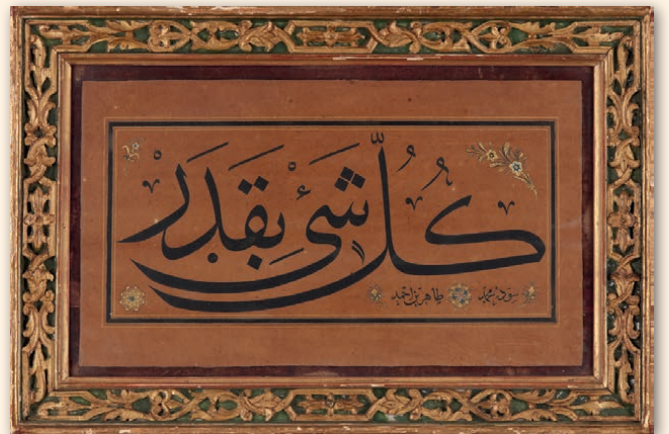 كُلُّ شَیْءٍ بِقَدَرٍ
سوّده محمد طاهر بن احمد